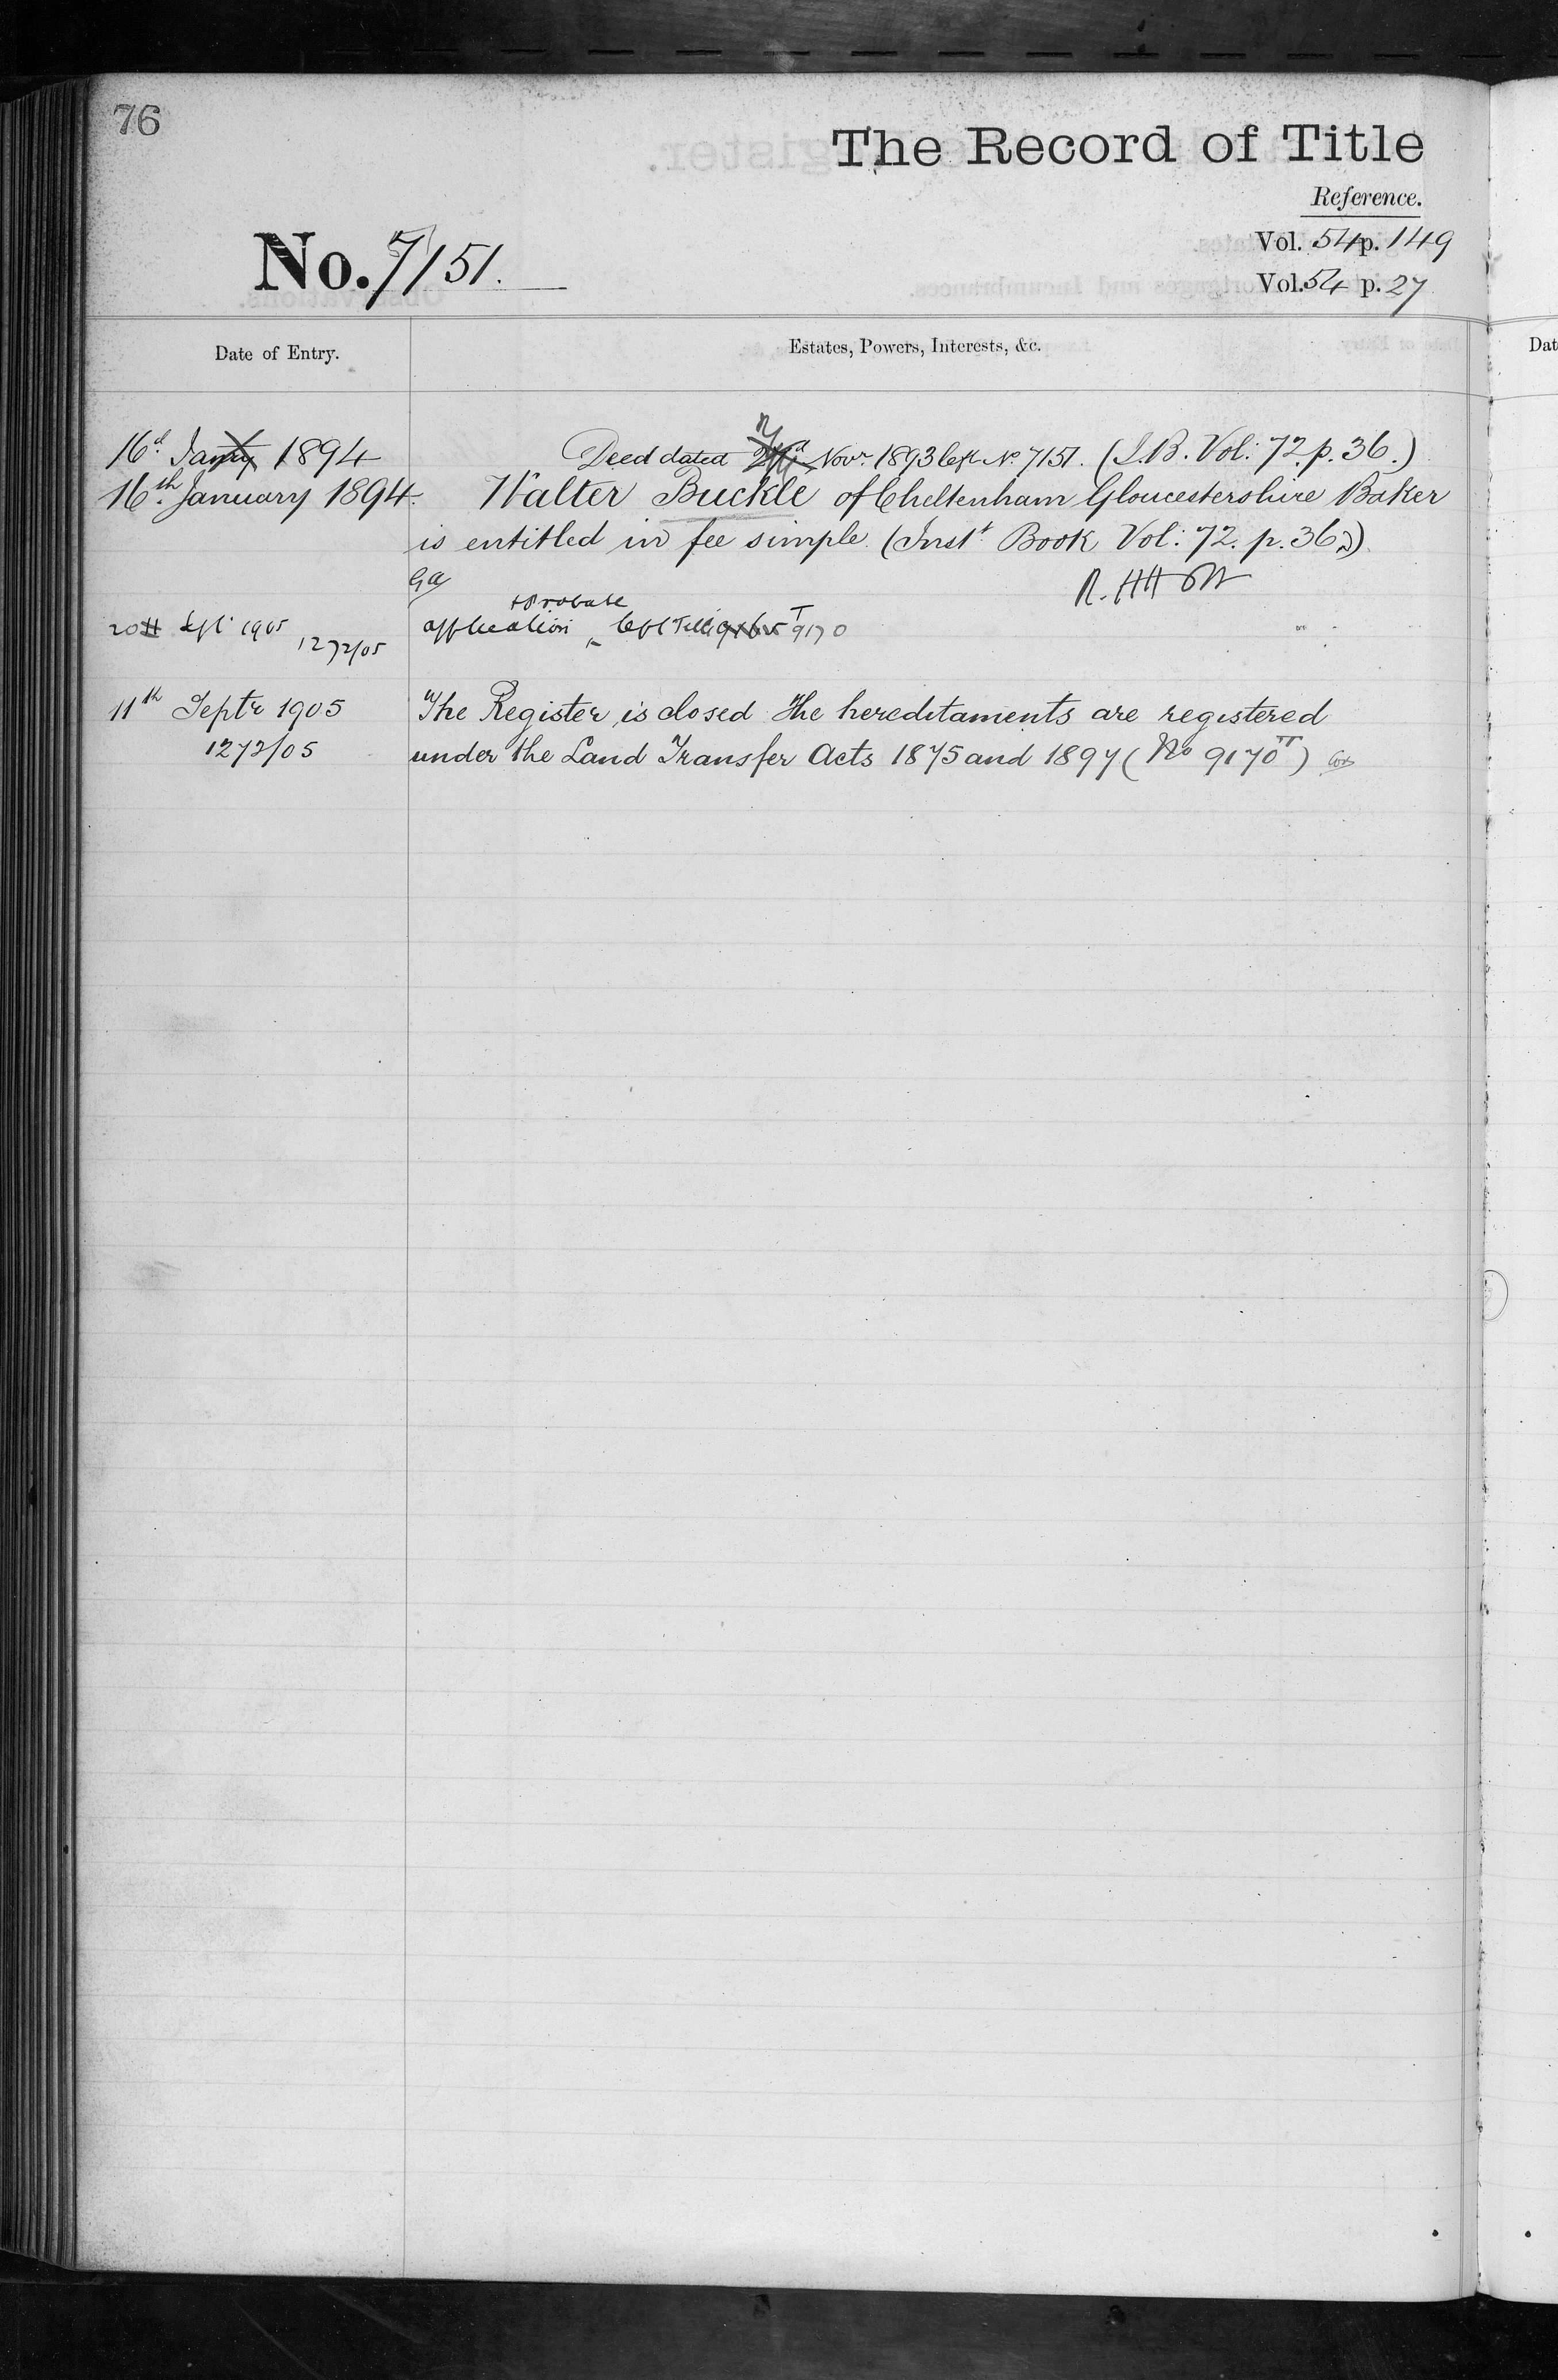 76
The Record of Title
Reference.
Vol. 54 p. 149
No. 7151.
Vol. 54 p. 27
Date of Entry.
Estates, Powers, Interests, &c.
Dat
16th 1894
Deed dated Novr. 1893 left No. 7151. (I.B. Vol: 72. p. 36.)
16th January 1894.
Walter Buckle of Cheltenham Gloucestershire Baker
is entitled in fee simple. (Inst. Book Vol: 72. p. 36.)
+ Probate
20 Sept 1905
1272/05
application left Title 9170
11th Septr 1905
The Register is closed The hereditaments are registered
1272/05
under the Land Transfer Acts 1875 and 1897 (No 9170)